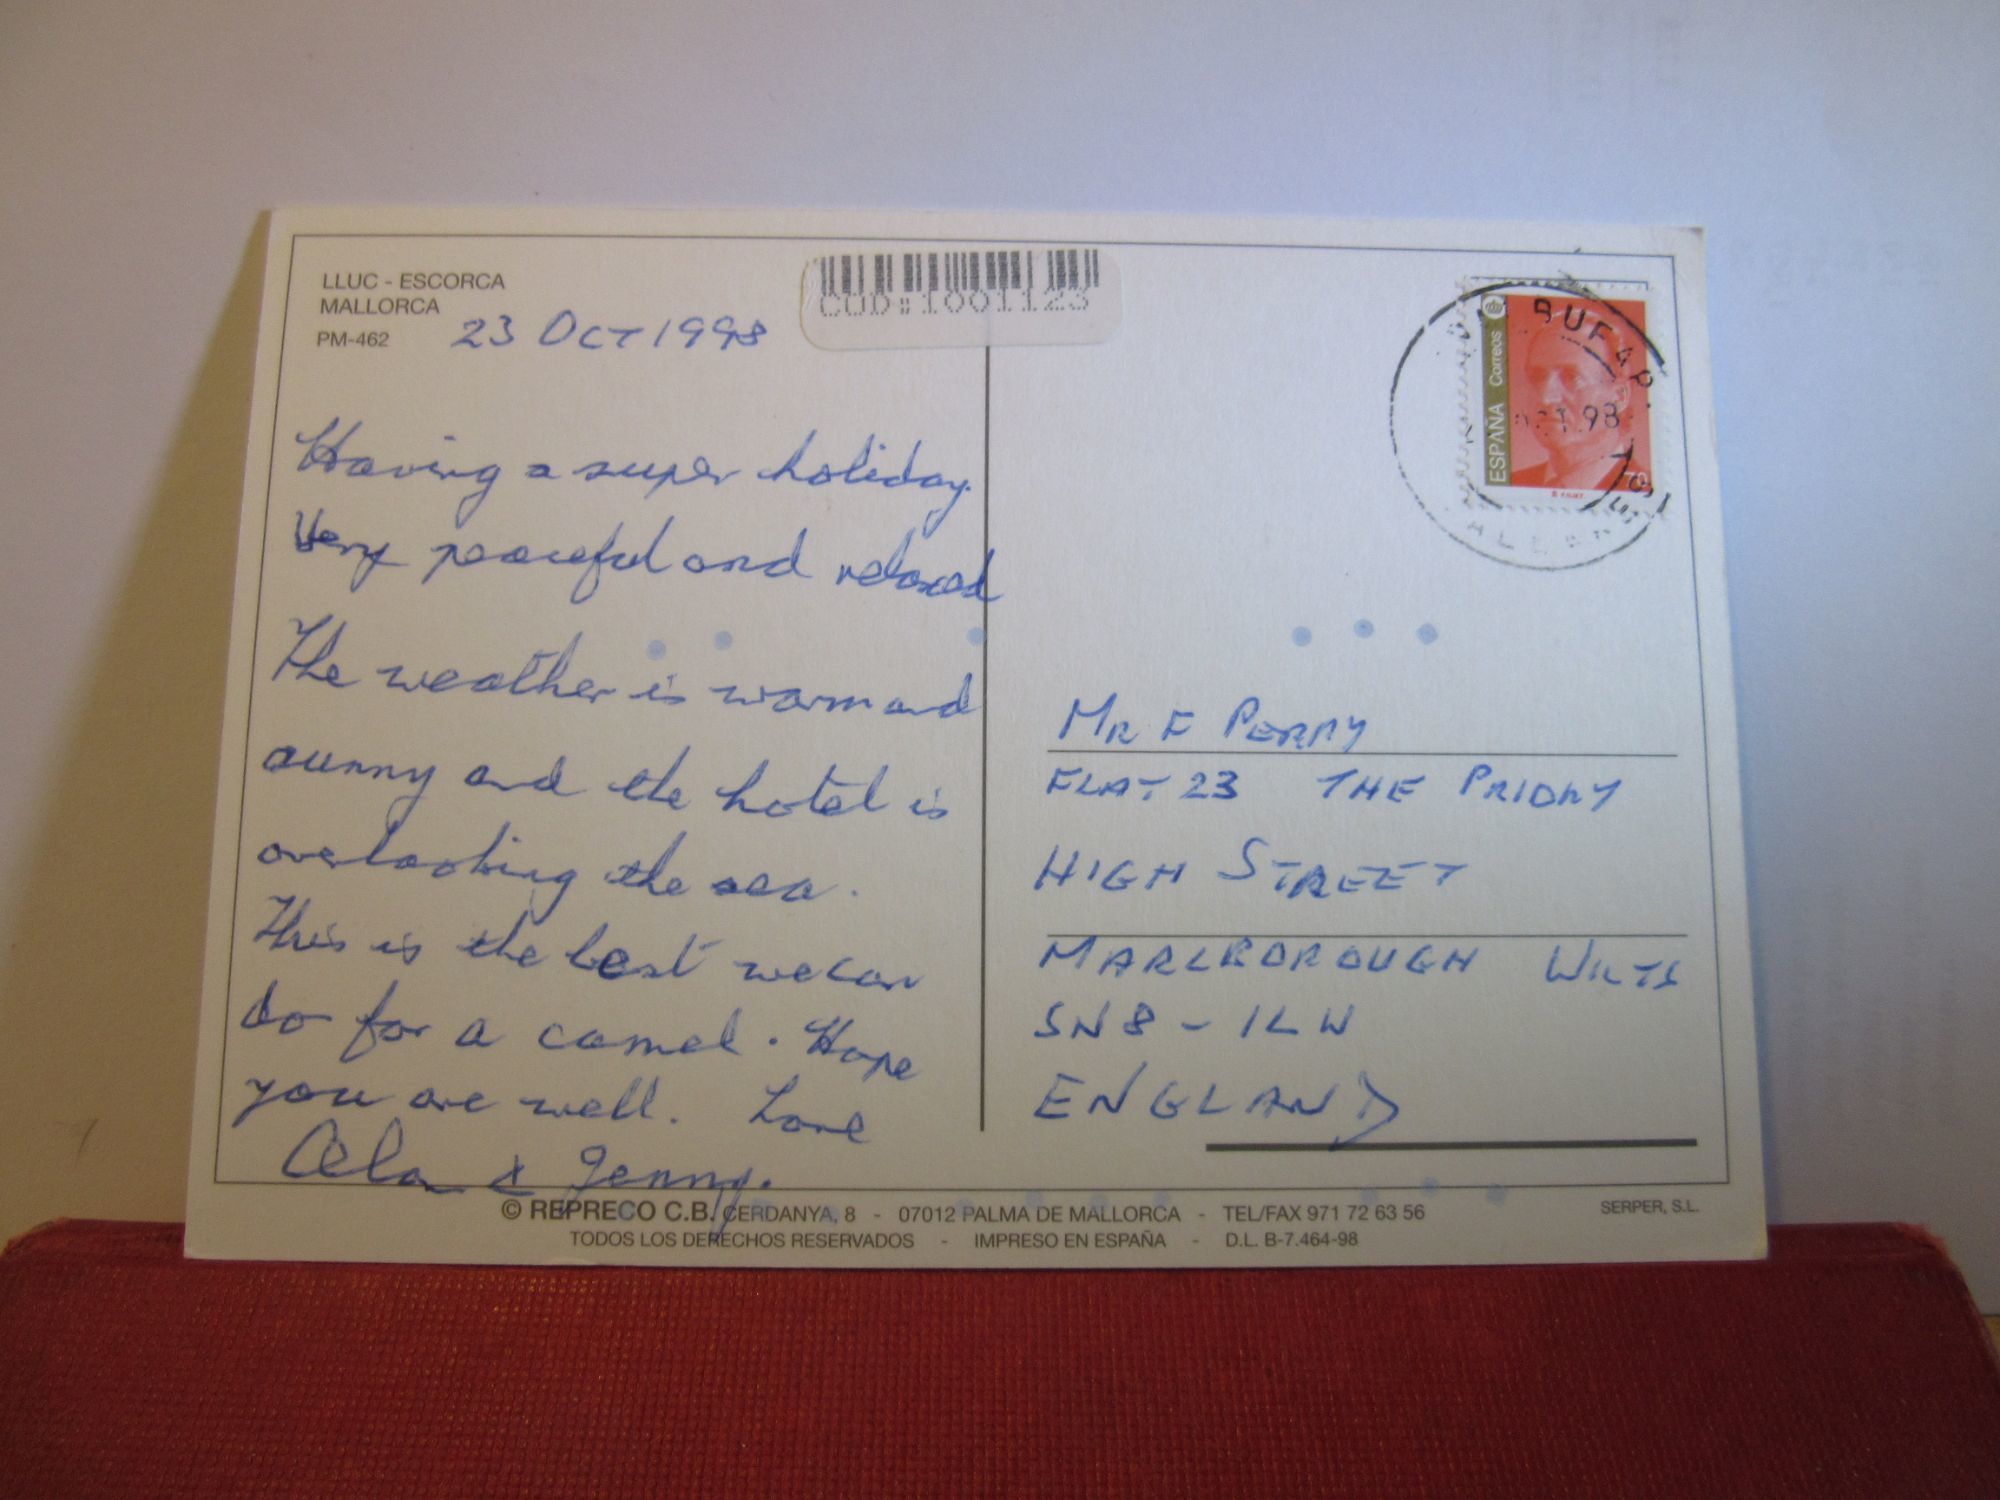 LLUC - ESCORCA
MALLORCA
PM-462
23 OCT 1998
COD:1001123
Having a super holiday.
Very peaceful and relaxed
The weather is warm and
sunny and the hotel is
overlooking the sea.
This is the best we can
do for a camel. Hope
you are well. Love
Alan & Jenny.
ESPAÑA Correos
BUFAR
OCT. 98
MR F PERRY
FLAT 23 THE PRIORY
HIGH STREET
MARLBOROUGH WILTS
SN8-1LW
ENGLAND
© REPRECO C.B. CERDANYA, 8 - 07012 PALMA DE MALLORCA - TEL/FAX 971 72 63 56
SERPER, S.L.
TODOS LOS DERECHOS RESERVADOS - IMPRESO EN ESPAÑA - D.L. B-7.464-98